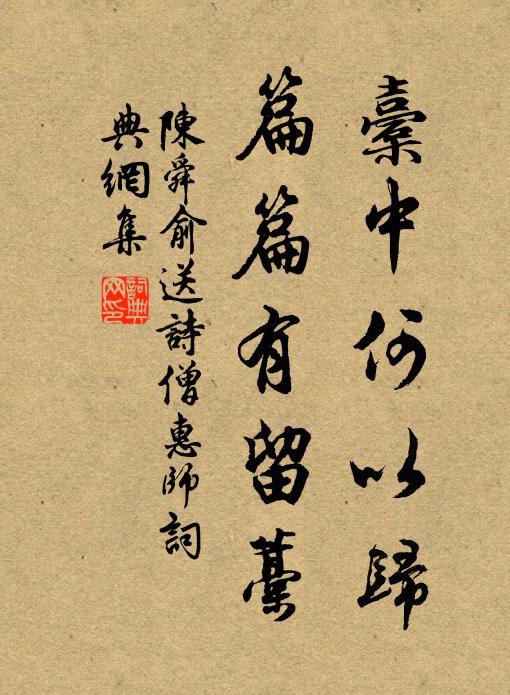 橐中何以歸
篇篇有留藁
陳舜俞送詩僧惠師詞
典網集
詞典
网印